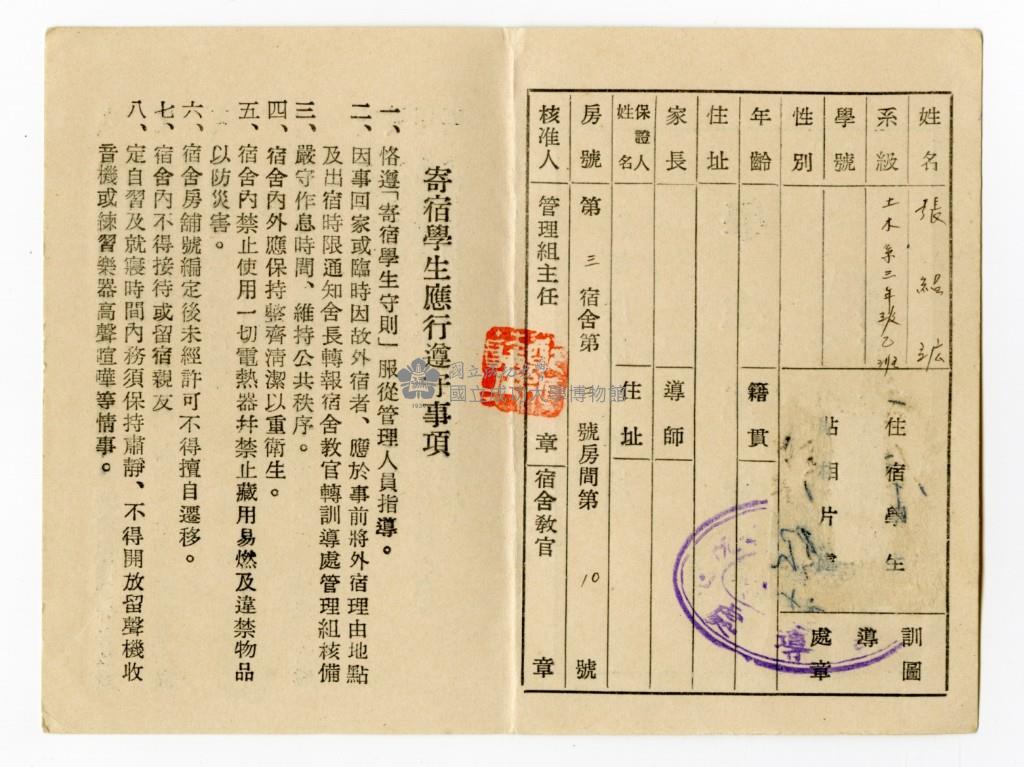 姓名 張緼浤
系級 土木系三年級乙班
學號
性別
年齡 籍貫
住址
家長 導師
保證人姓名 住址
房號 第三宿舍第 號房間第10號
核准人 管理組主任 章 宿舍教官 章
住宿學生
貼相片處
訓導處圖章
寄宿學生應行遵守事項
一、恪遵「寄宿學生守則」服從管理人員指導。
二、因事回家或臨時因故外宿者、應於事前將外宿理由地點
及出宿時限通知舍長轉報宿舍教官轉訓導處管理組核備
三、嚴守作息時間、維持公共秩序。
四、宿舍內外應保持整齊清潔以重衛生。
五、宿舍內禁止使用一切電熱器幷禁止藏用易燃及違禁物品
以防災害。
六、宿舍房舖號編定後未經許可不得擅自遷移。
七、宿舍內不得接待或留宿親友
八、定自習及就寢時間內務須保持肅靜、不得開放留聲機收
音機或練習樂器高聲喧嘩等情事。
國立成功大學博物館